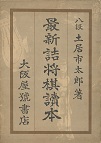 八段 土居市太郎著
最新詰将棋讀本
大阪屋號書店